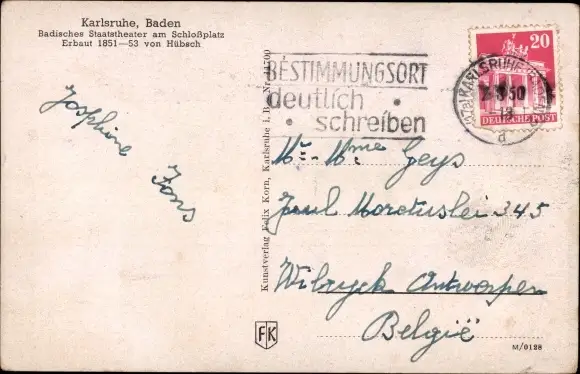 Karlsruhe, Baden
Badisches Staatstheater am Schloßplatz
Erbaut 1851—53 von Hübsch
Josephine
Fons
Kunstverlag Felix Korn, Karlsruhe i. B.
BESTIMMUNGSORT
deutlich
schreiben
20
DEUTSCHE POST
KARLSRUHE
50
d
Mr - Mme Geys
Paul Moretuslei 345
Wilryck Antwerpen
België
FK
M/0128